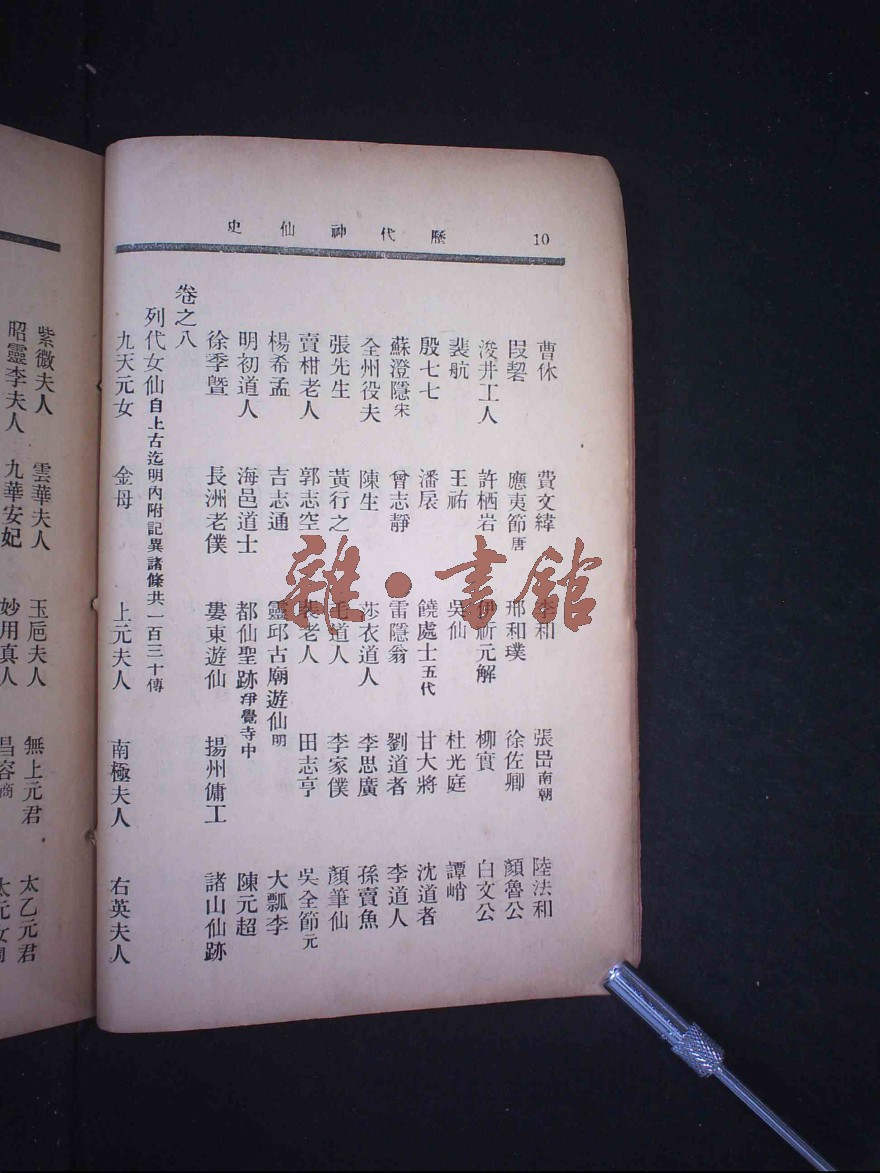 歷代神仙史 10
曹休 費文緯 李和 張岊南朝 陸法和
叚䂮 應夷節唐 邢和璞 徐佐卿 顏魯公
浚井工人 許栖岩 伊祈元解 柳實 白文公
裴航 王祐 吳仙 杜光庭 譚峭
殷七七 潘扆 饒處士五代 甘大將 沈道者
蘇澄隱宋 曾志靜 雷隱翁 劉道者 李道人
全州役夫 陳生 莎衣道人 李思廣 孫賣魚
張先生 黃行之 毛道人 李家僕 顏筆仙
賣柑老人 郭志空 裴老人 田志亨 吳全節元
楊希孟 吉志通 靈邱古廟遊仙明 大瓢李
明初道人 海邑道士 都仙聖跡淨覺寺中 陳元超
徐季暨 長洲老僕 婁東遊仙 揚州傭工 諸山仙跡
卷之八
列代女仙自上古迄明內附記異諸條共一百三十傳
九天元女 金母 上元夫人 南極夫人 右英夫人
紫微夫人 雲華夫人 玉巵夫人 無上元君 太乙元君
昭靈李夫人 九華安妃 妙用真人 昌容商 太元女周
雜·書館